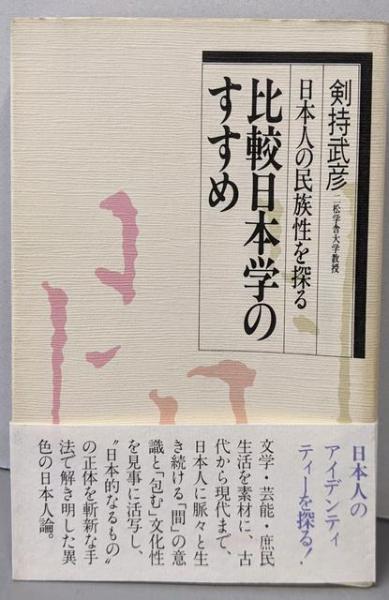 剣持武彦
二松学舎大学教授
日本人の民族性を探る
比較日本学の
すすめ
日本人の
アイデンティ
ティーを探る!
文学・芸能・庶民
生活を素材に、古
代から現代まで、
日本人に脈々と生
き続ける「間」の意
識と「包む」文化性
を見事に活写し、
“日本的なるもの”
の正体を斬新な手
法で解き明した異
色の日本人論。